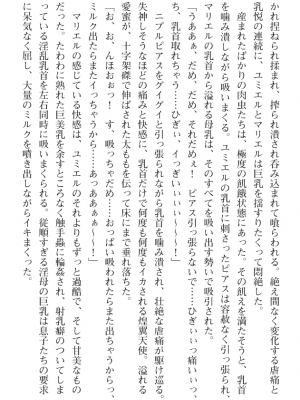 かれ捏ねられ揉まれ、搾られ潰され呑み込まれて喰らわれる。絶え間なく変化する虐痛と
乳悦の連続に、ユミエルとマリエルは巨乳を揺すりたくって悶絶した。
産まれたばかりの肉虫たちは、極度の飢餓状態にあった。その飢えを満たそうと、乳首
を噛み潰しながら吸いまくる。ユミエルの乳首に刺さったピアスは容赦なく引っ張られ、
マリエルの乳首から溢れる母乳は、そのすべてを吸い出す勢いで吸引された。
「うああぁ、だめ、だめ、それだめぇ！　ピアス引っ張らないで……ひぎぃ痛いっ、
乳首取れちゃう……ひぎぃぃ、イっぎぃぃぃぃ～～～！」
ニプルピアスをグイグイと引っ張られながら乳首を噛み潰され、壮絶な虐痛が駆け巡る。
失神しそうなほどの痛みと快感に、乳首だけで何度も何度もイカされる煌翼天使。溢れる
愛蜜が、十字架磔で伸ばされた太ももを伝って床にまで垂れ落ちた。
「お、おぉ、んほぉおっ！　す、吸っちゃだめ……おっぱい吸われたらまた出ちゃうからっ、
ミルク出たらまたイっちゃうから……あっああぁぁ～～～！」
マリエルの感じている快感は、ユミエルのそれよりもずっと過酷で、そして甘美なもの
だった。たわわに熟れた巨美乳を余すところなく触手蟲に輪姦され、射乳癖のついてしま
っている淫乱乳首を左右同時に吸いまくられる。従順すぎる淫母の巨乳は息子たちの要求
に呆気なく屈し、大量のミルクを噴き出しながらイキまくった。